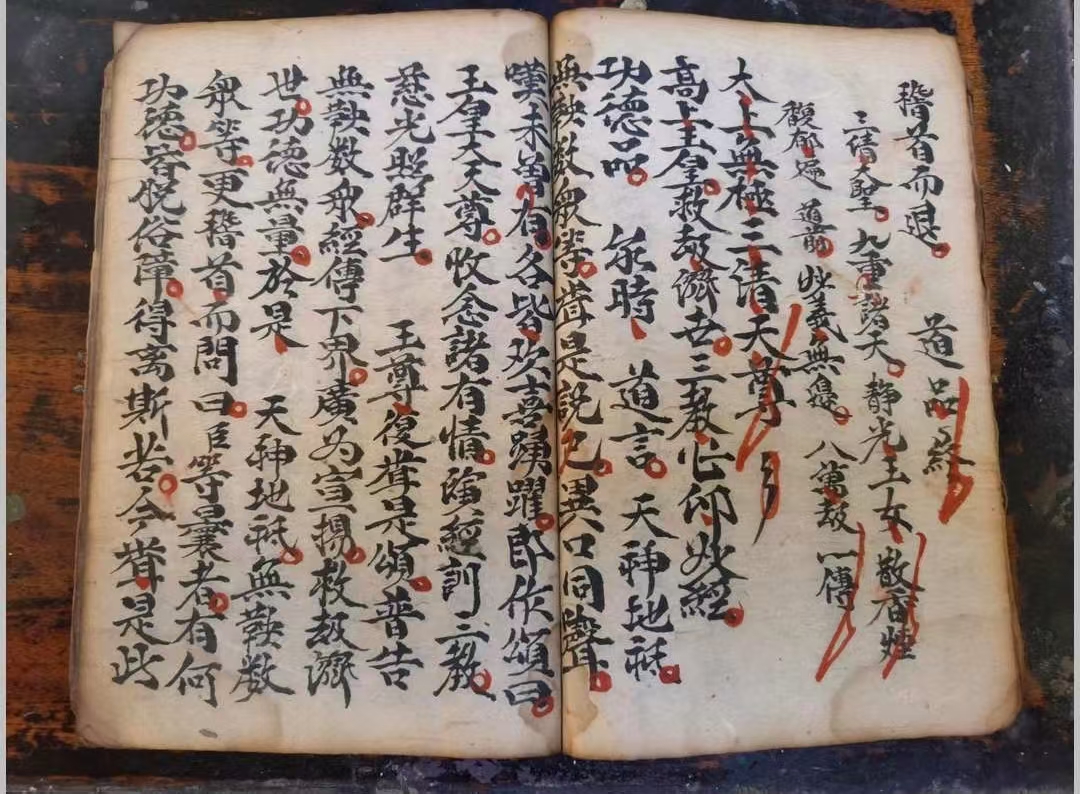 稽首而退 道品經
三清大聖 九重諸天 静光玉女 散香
觀 道前 妙義無邊 八萬劫一傳
太上無極三清天尊
高上玉皇救劫濟世三教心印妙經
功德品 尔時 道言 天神地祇
無鞅數衆等聞是說已異口同聲
嘆未曽有各皆欢喜踴躍即作頌曰
玉皇大天尊 收念諸有情 演經訓三教
慈光照群生 玉尊復聞是頌普告
無鞅数衆經傳下界廣为宣揚救劫濟
世功德無量於是 天神地祇無鞅数
衆等更稽首而問曰臣等曩者有何
功德皆脱俗障得离斯苦今聞是此